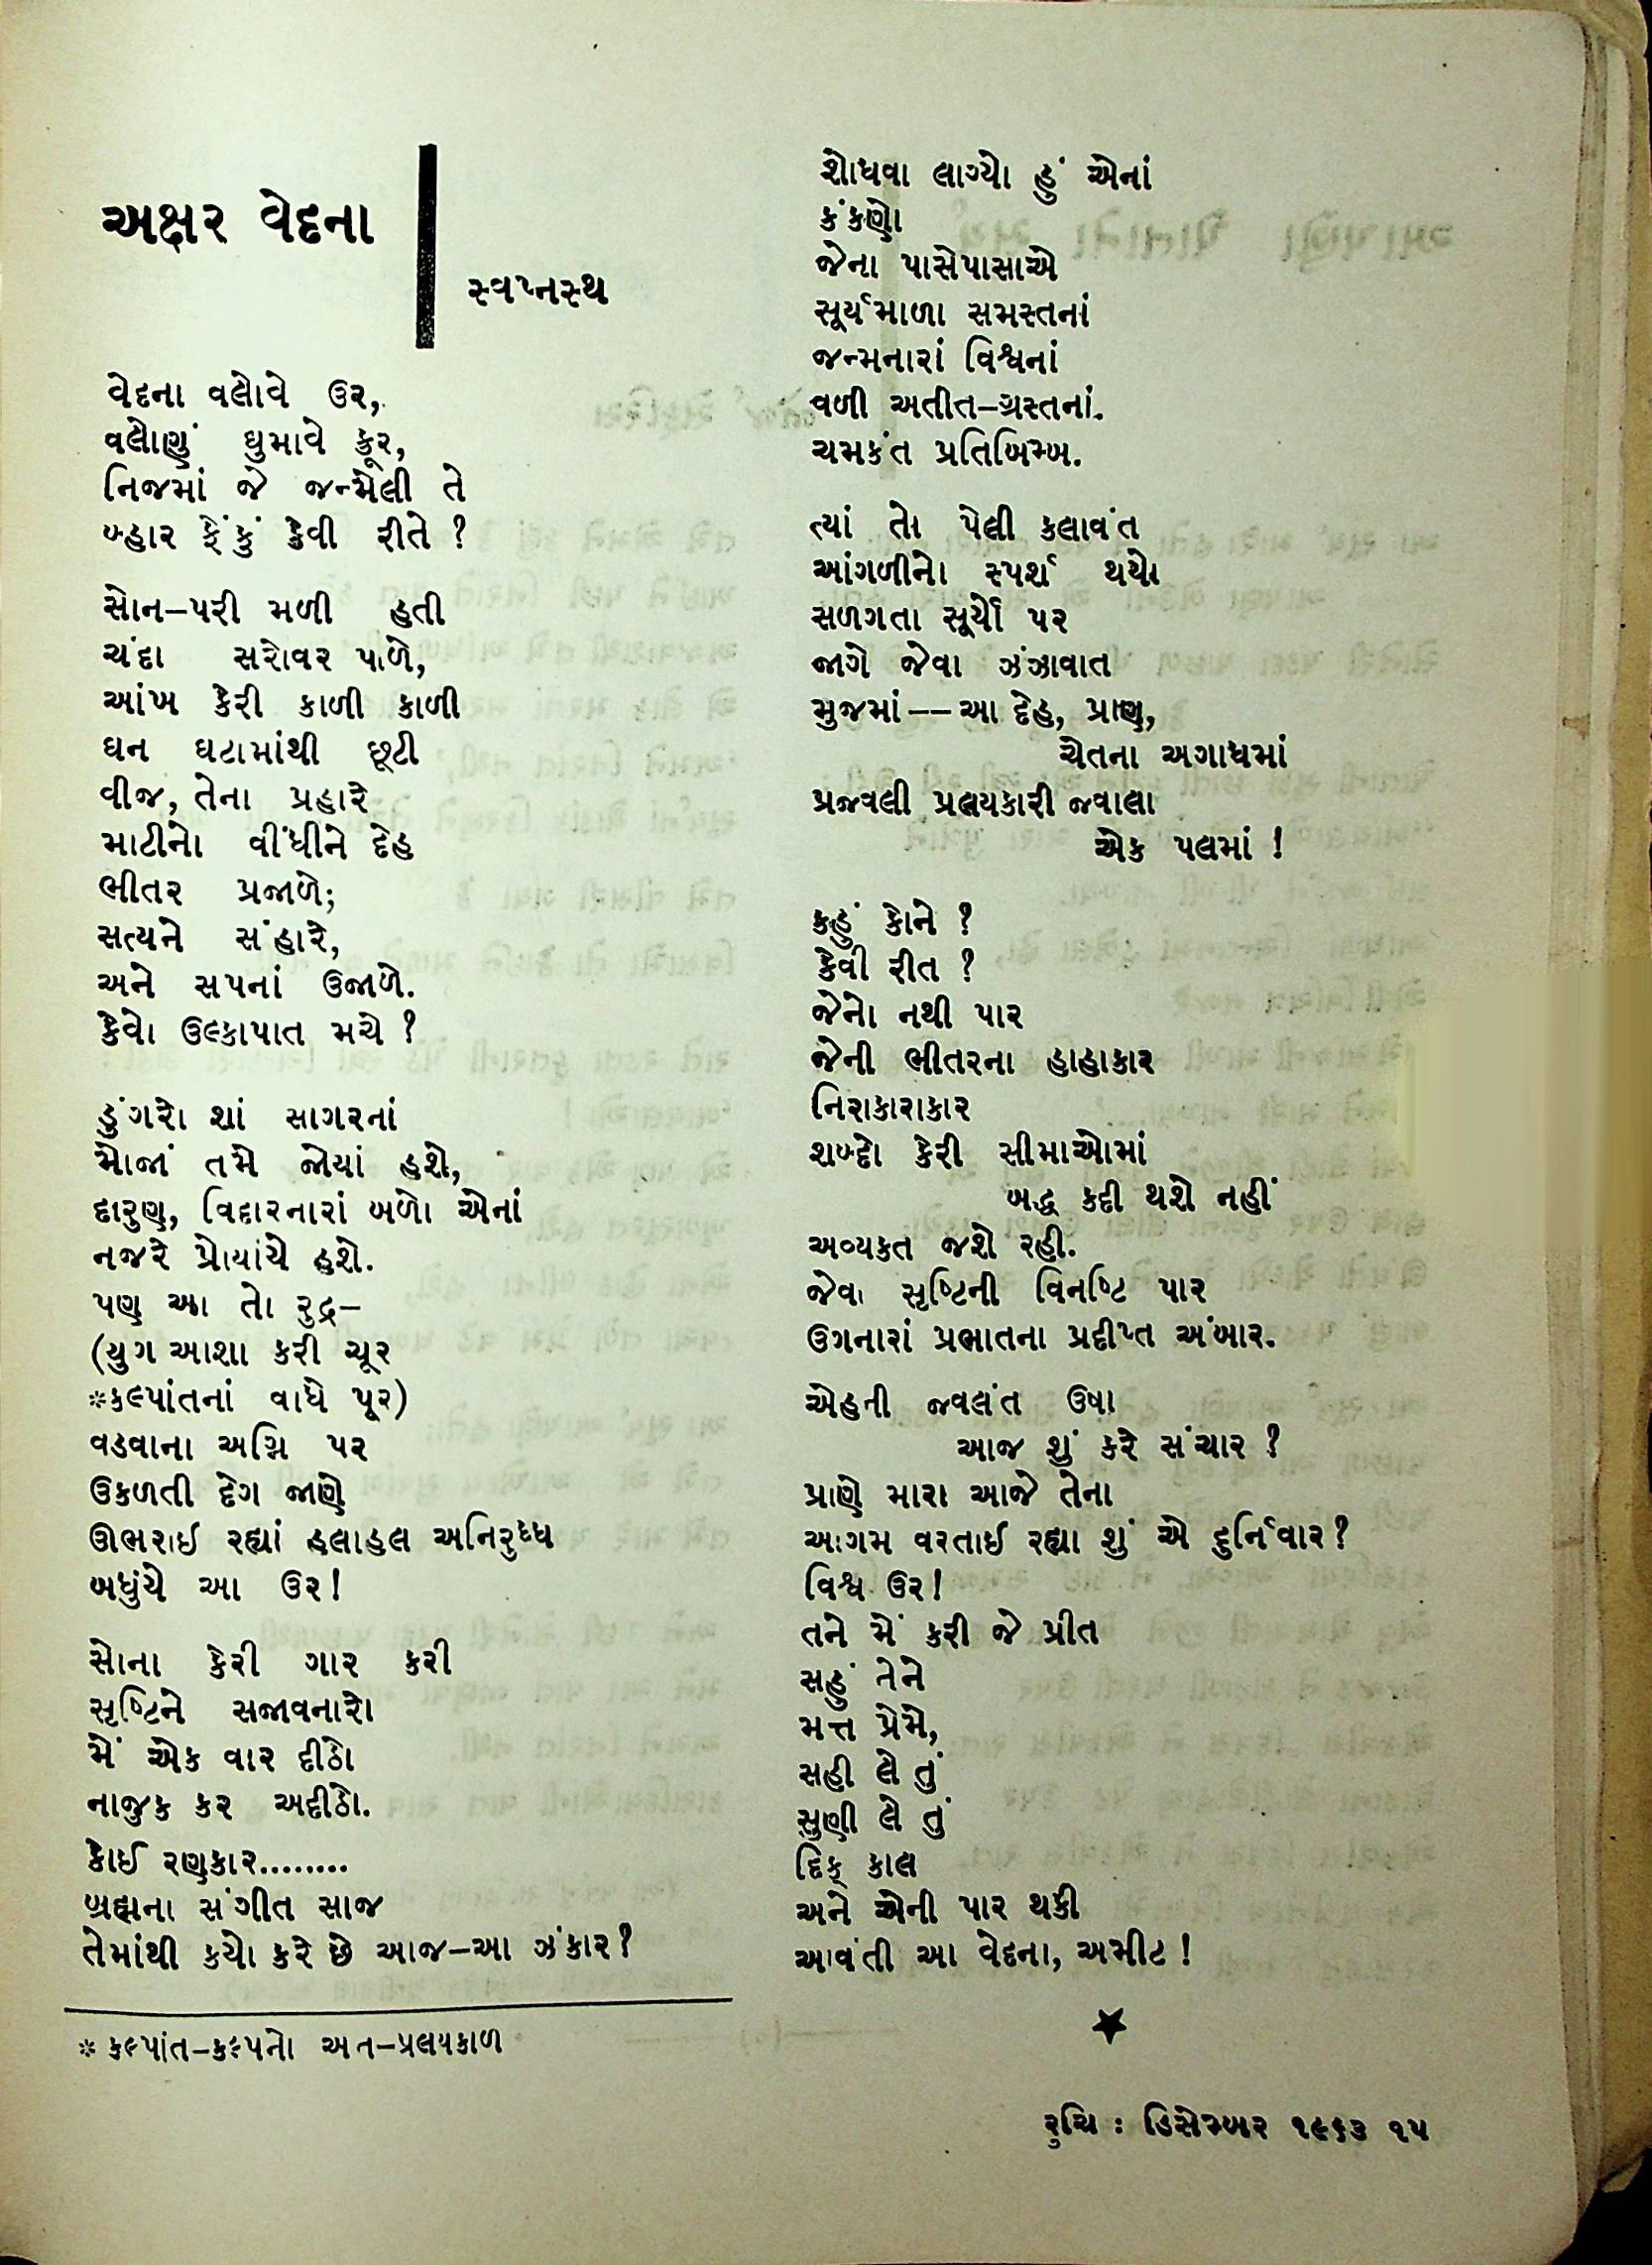 અક્ષર વેદના
સ્વપ્નસ્થ
વેદના વલોવે ઉર,
વલોણું ઘુમાવે ક્રૂર,
નિજમાં જે જન્મેલી તે
બ્હાર ફેંકું કેવી રીતે ?
સોન–પરી મળી હતી
ચંદા સરોવર પાળે,
આંખ કેરી કાળી કાળી
ઘન ઘટામાંથી છૂટી
વીજ, તેના પ્રહારે
માટીનો વીંધીને દેહ
ભીતર પ્રજાળે;
સત્યને સંહારે,
અને સપનાં ઉજાળે.
કેવો ઉલ્કાપાત મચે ?
ડુંગરો શાં સાગરનાં
મોજાં તમે જોયાં હશે,
દારુણ, વિદારનારાં બળો એનાં
નજરે પ્રોયાંયે હશે.
પણ આ તો રુદ્ર–
(યુગ આશા કરી ચૂર
*કલ્પાંતનાં વાધે પૂર)
વડવાના અગ્નિ પર
ઉકળતી દેગ જાણે
ઊભરાઈ રહ્યાં હલાહલ અનિરુધ્ધ
બધુંયે આ ઉર!
સોના કેરી ગાર કરી
સૃષ્ટિને સજાવનારો
મેં એક વાર દીઠો
નાજુક કર અદીઠો.
કોઈ રણકાર........
બ્રહ્મના સંગીત સાજ
તેમાંથી કર્યો કરે છે આજ–આ ઝંકાર?
* કલ્પાંત–કલ્પનો અત–પ્રલયકાળ
શોધવા લાગ્યો હું એનાં
કંકણો
જેના પાસેપાસાએ
સૂર્યમાળા સમસ્તનાં
જન્મનારાં વિશ્વનાં
વળી અતીત–ગ્રસ્તનાં.
ચમકંત પ્રતિબિમ્બ.
ત્યાં તો પેલી કલાવંત
આંગળીનો સ્પર્શ થયો
સળગતા સૂર્યો પર
જાગે જેવા ઝંઝાવાત
મુજમાં –– આ દેહ, પ્રાણ,
ચેતના અગાધમાં
પ્રજવલી પ્રલયકારી જવાલા
એક પલમાં !
કહું કોને ?
કેવી રીત ?
જેનો નથી પાર
જેની ભીતરના હાહાકાર
નિરાકારાકાર
શબ્દો કેરી સીમાઓમાં
બદ્ધ કદી થશે નહીં
અવ્યકત જશે રહી.
જેવા સૃષ્ટિની વિનષ્ટિ પાર
ઉગનારાં પ્રભાતના પ્રદીપ્ત અંબાર.
એહની જવલંત ઉષા
આજ શું કરે સંચાર ?
પ્રાણે મારા આજે તેના
આગમ વરતાઈ રહ્યા શું એ દુર્નિવાર ?
વિશ્વ ઉર!
તને મેં કરી જે પ્રીત
સહું તેને
મત્ત પ્રેમે,
સહી લે તું
સુણી લે તું
દિક્ કાલ
અને એની પાર થકી
આવંતી આ વેદના, અમીટ !
રુચિ : ડિસેમ્બર ૧૯૬૩ ૧૫